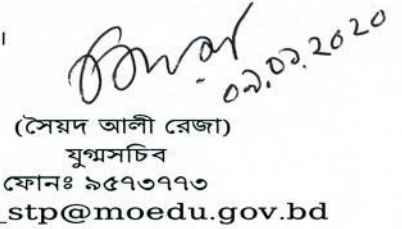 ।
০৯.০১.2020
(সৈয়দ আলী রেজা)
যুগ্মসচিব
ফোনঃ ৯৫৭৩৭৭৩
_stp@moedu.gov.bd